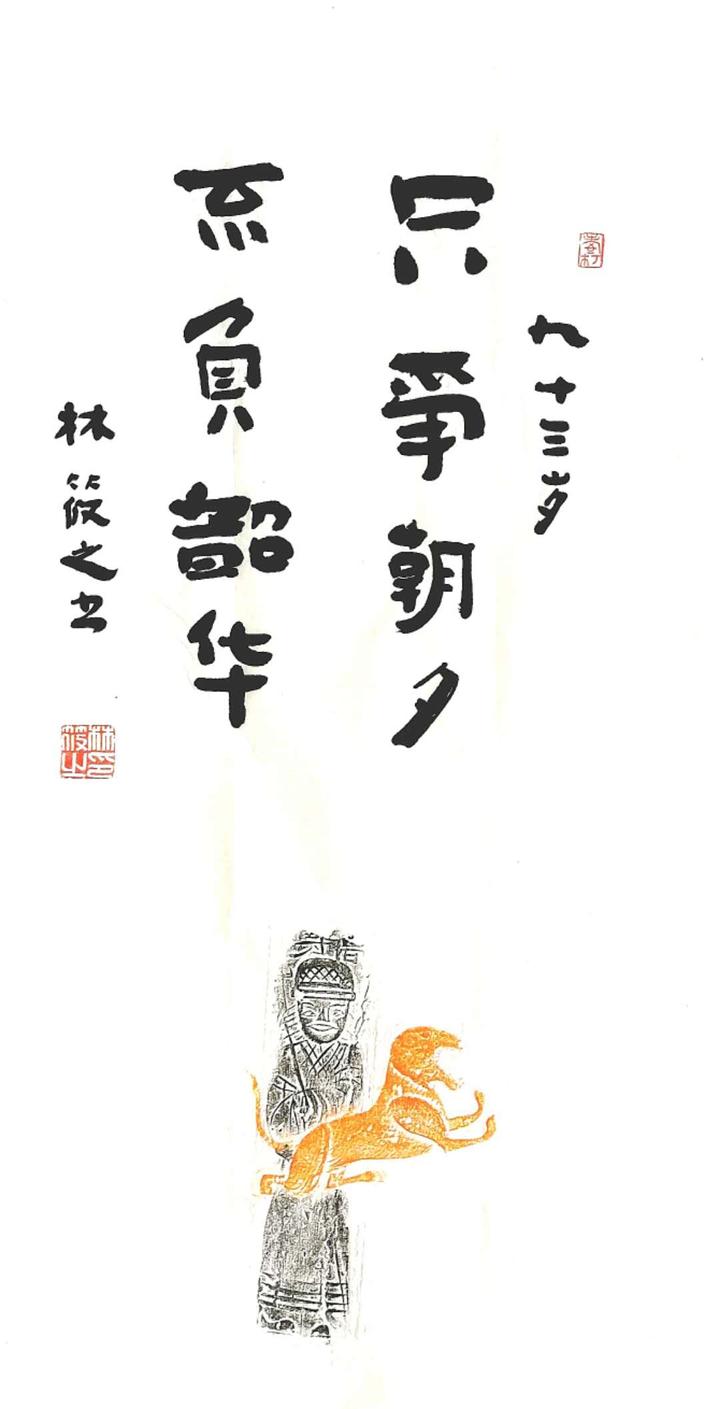 九十三岁
只争朝夕
不負韶华
林筱之书
林筱之印